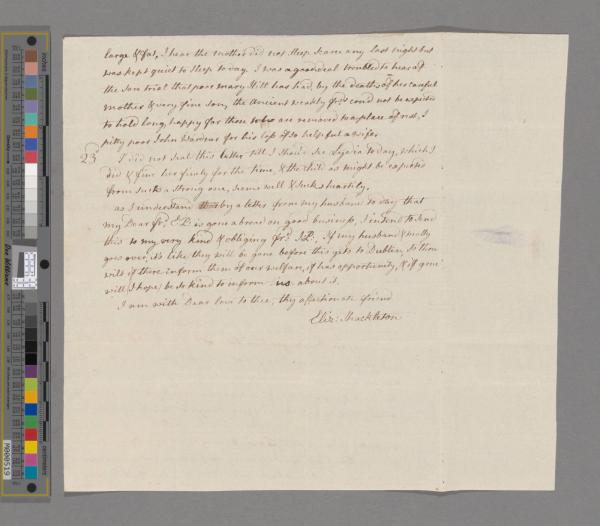 large & fat, I hear the mother did not sleep scarce any last night but
was kept quiet to sleep to day. I was a grondeal troubled to hear of
the son trial that poor Mary Hill has had, by the deaths of her careful
mother & very fine son, the Ancient weakly frds could not be expected
to hold long, happy for those who are removed to a place of rest, I
pitty poor John Wardeur for his loss of so helpful a wife.
23d I did not seal this letter till I should see Lydia to day, which I
did & find her finely for the time, & the child as might be expected
from such a strong one, seems well & sucks heartily,
as I understand by a letter from my husband to day that
my Dear fr. E P is gone abroad on good business, I intend to send
this to my very kind & obliging frd. J P. If my husband & molly
goes over, it's like they will be gone before this gets to Dublin, so thou
wilt if there inform them of our welfare, if has opportunity, & if gone
will I hope be so kind to inform us about it.
I am with Dear love to thee, thy affectionate friend
Eliz: Shackleton
inches
centimetres
M000519